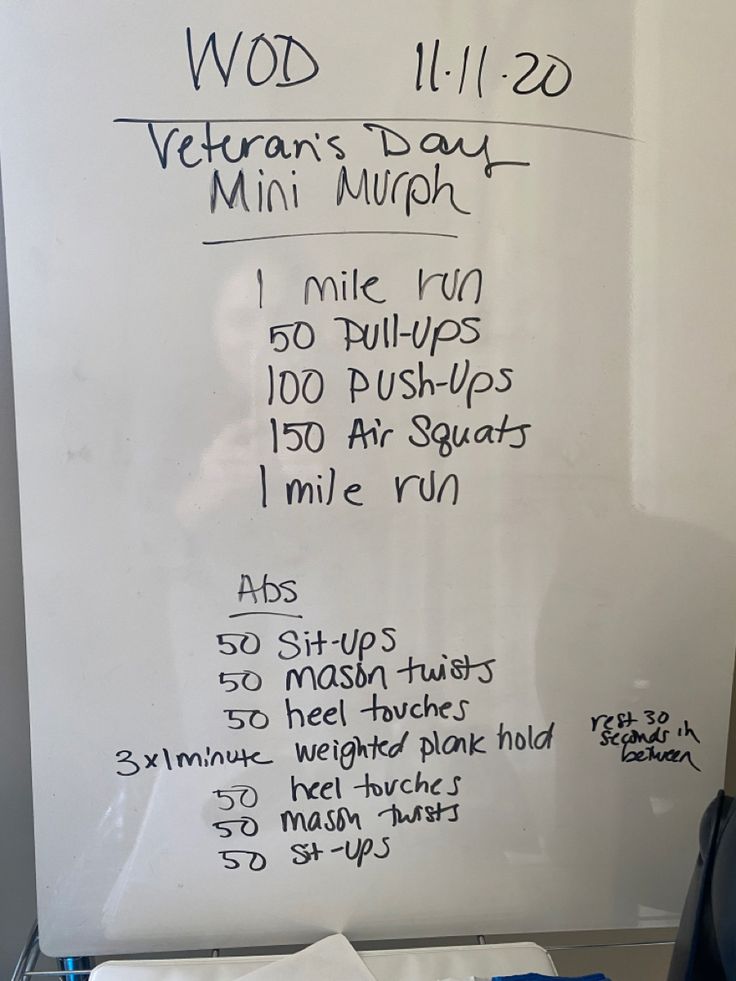 WOD 11.11.20
Veteran's Day
Mini Murph
1 mile run
50 Pull-Ups
100 Push-Ups
150 Air Squats
1 mile run
Abs
50 Sit-ups
50 mason twists
50 heel touches
3x1 minute weighted plank hold
rest 30
seconds in
between
50 heel touches
50 mason twists
50 sit-ups